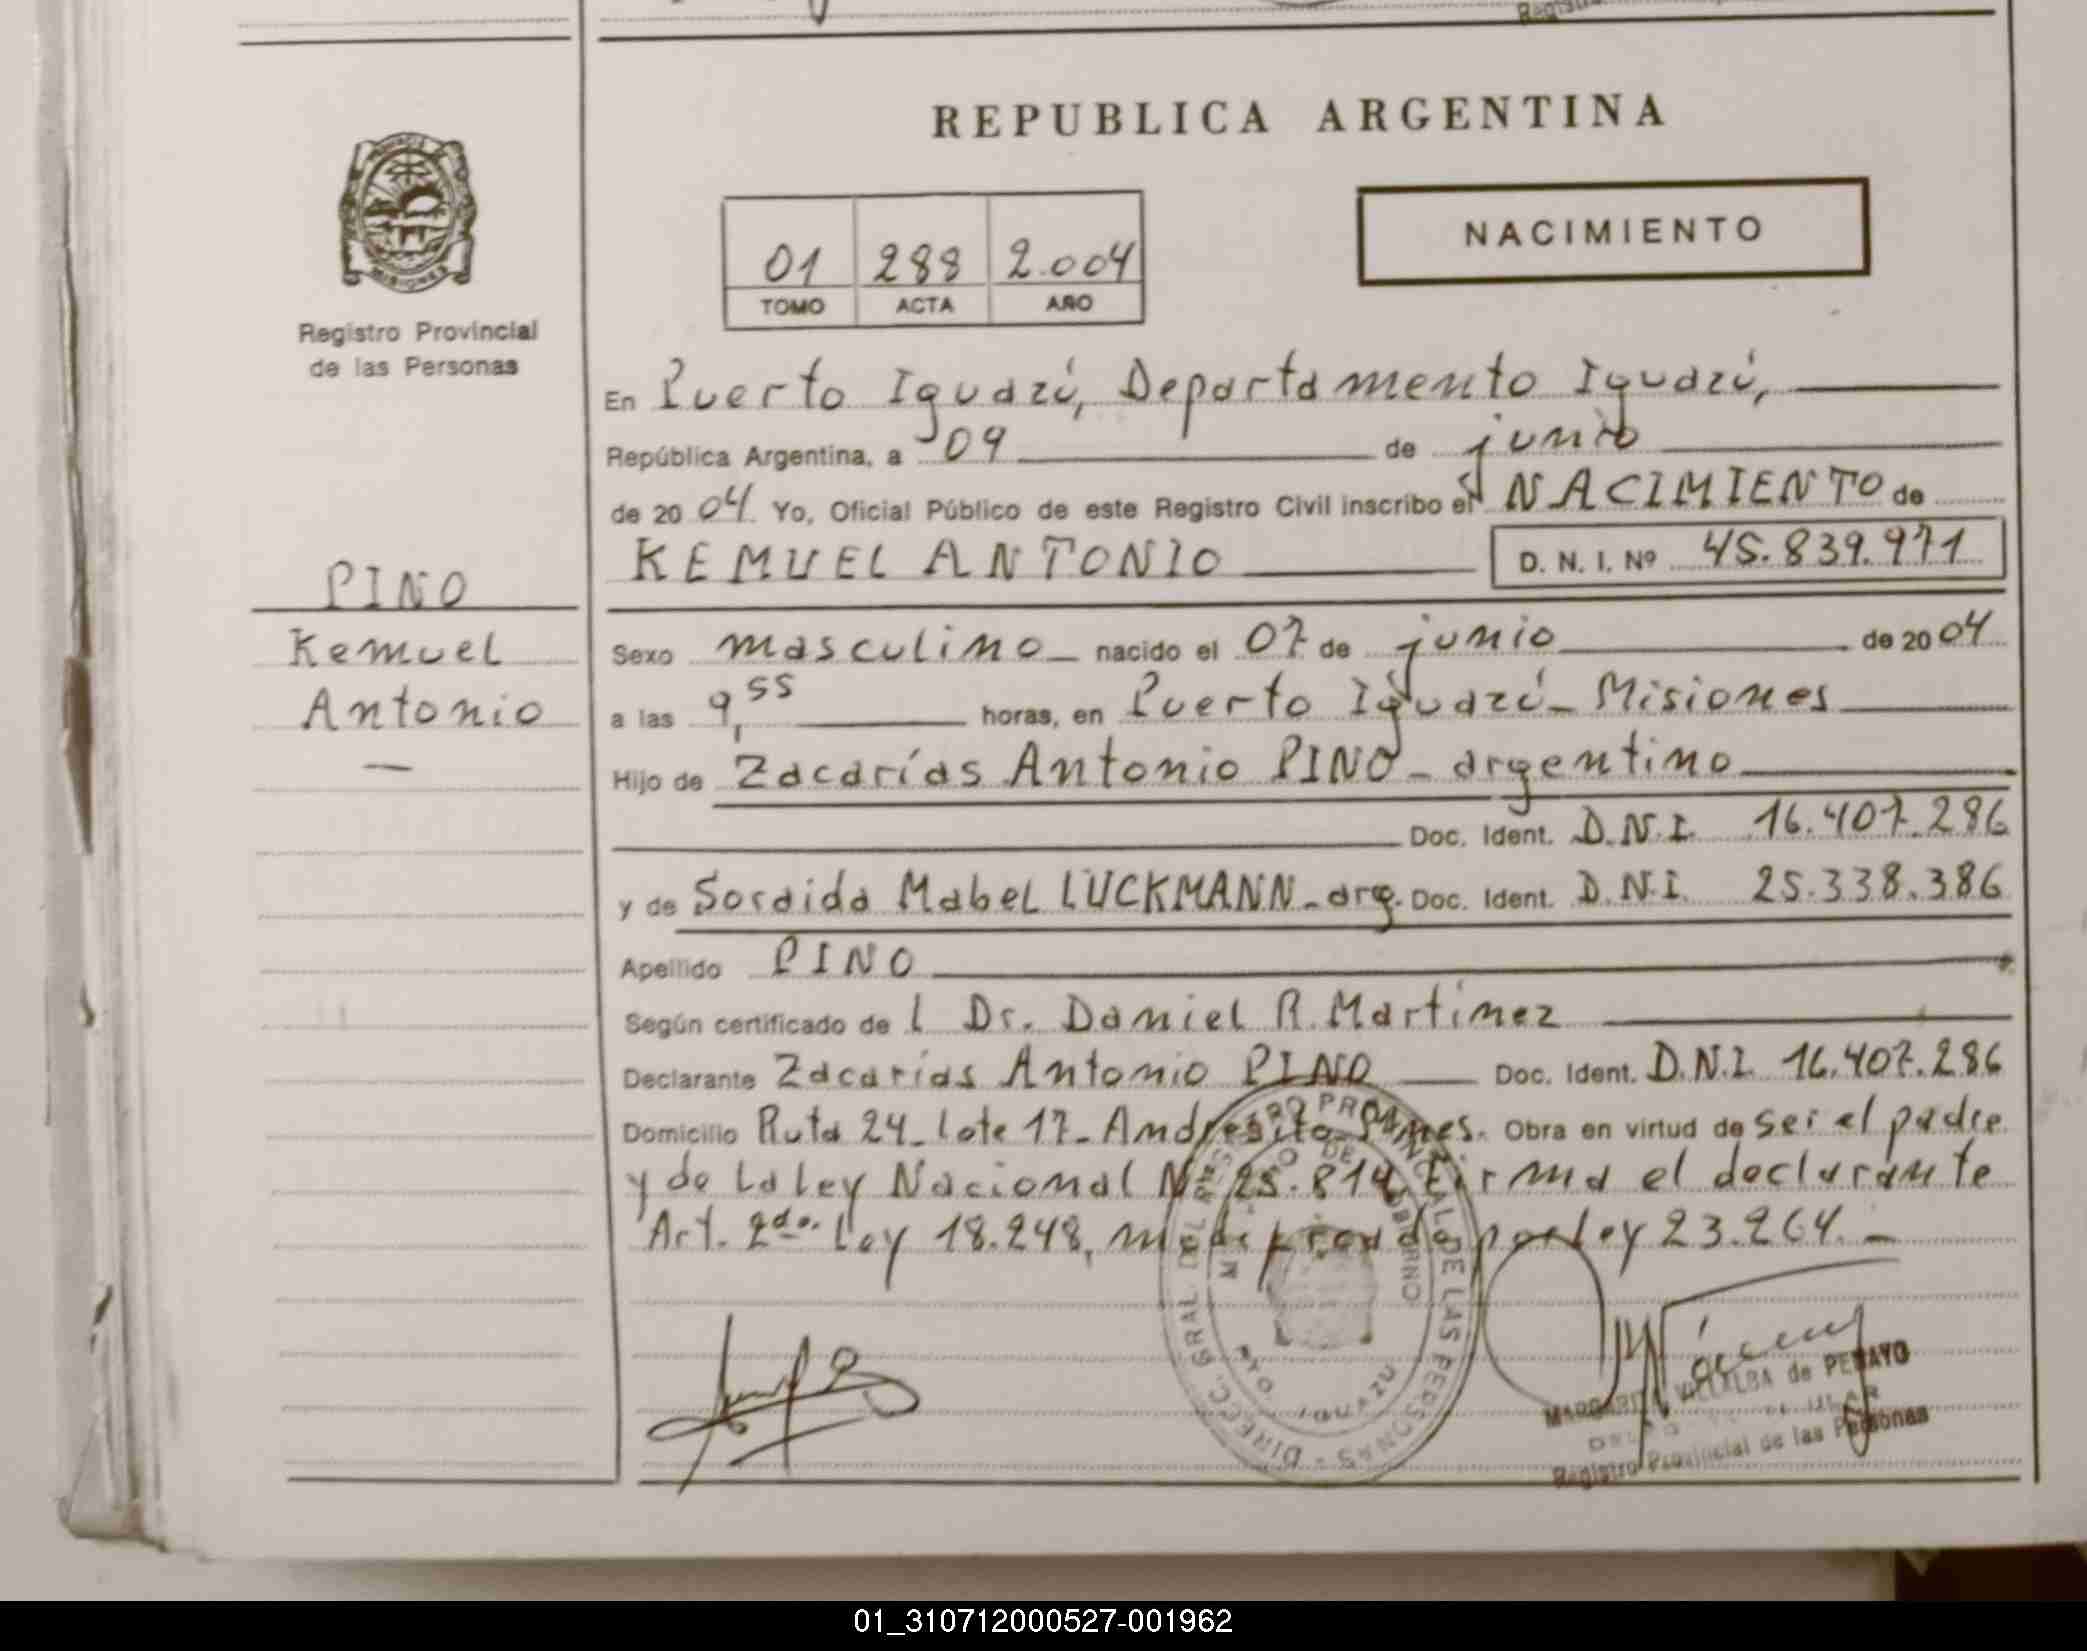 REPUBLICA ARGENTINA
NACIMIENTO
01 288 2.004
TOMO ACTA AÑO
MISIONES
Registro Provincial
de las Personas
PINO
Kemuel
Antonio
En Puerto Iguazú, Departamento Iguazú,
República Argentina, a 09 de junio
de 2004 Yo, Oficial Público de este Registro Civil inscribo el NACIMIENTO de
KEMUEL ANTONIO D. N. I. Nº 45.839.971
Sexo masculino nacido el 07 de junio de 2004
a las 9,55 horas, en Puerto Iguazú - Misiones
Hijo de Zacarías Antonio PINO - argentino
Doc. Ident. D.N.I. 16.407.286
y de Soraida Mabel LUCKMANN - arg. Doc. Ident. D.N.I. 25.338.386
Apellido PINO
Según certificado de l Dr. Daniel R. Martínez
Declarante Zacarías Antonio PINO Doc. Ident. D.N.I. 16.407.286
Domicilio Ruta 24 - Lote 17 - Andresito - Obra en virtud de ser el padre
y de La ley Nacional Nº 25.819 Firma el declarante
Art. 2do. Ley 18.248, por ley 23.264. -
DIRECC. GRAL DEL REGISTRO PROVINCIAL DE LAS PERSONAS
IGUAZU
MARGARITA VILLALBA de PENAYO
Registro Provincial de las Personas
01_310712000527-001962